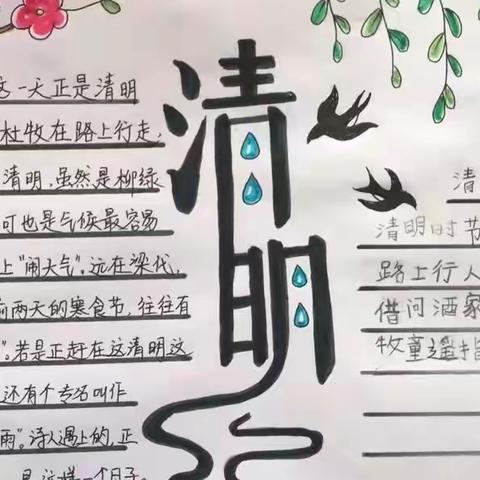 这一天正是清明
杜牧在路上行走,
清明,虽然是柳绿
可也是气候最容易
上"闹大气"。远在梁代,
前两天的寒食节,往往有
"。若是正赶在这清明这
还有个专名叫作
雨"。诗人遇上的,正
是这样一个日子。
清明
清
清明时节
路上行人
借问酒家
牧童遥指